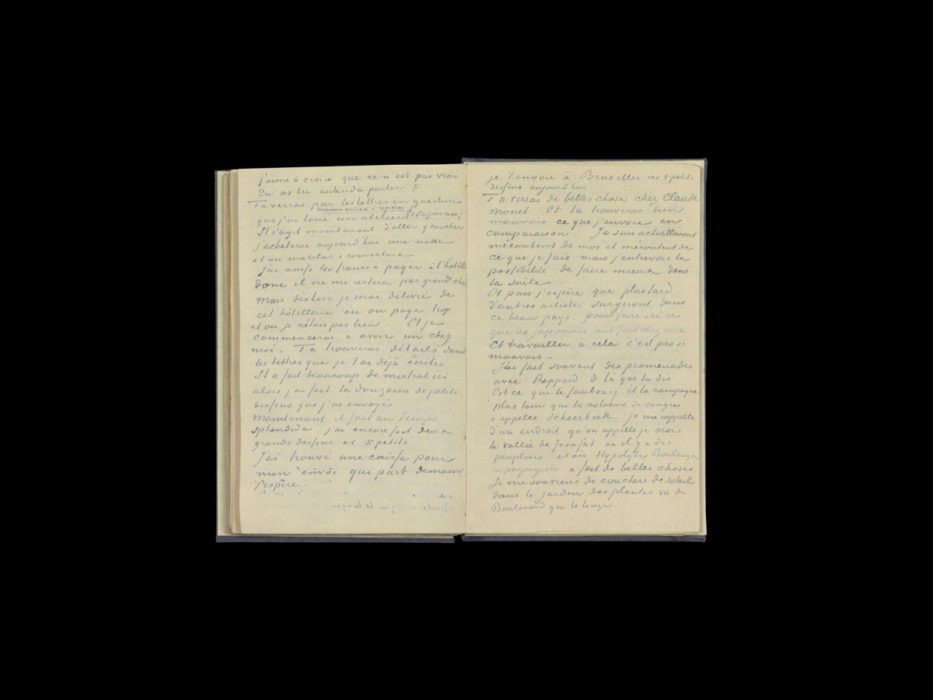 j'aime à croire que ce n'est pas vrai
En as tu entendu parler?
Tu verras par les lettres en question
que j'ai loué un atelier
Il s'agit maintenant d'aller y coucher
j'acheterai aujourd'hui une natte
et un matelas & couverture
J'ai aussi 40 francs à payer à l'hôtel
donc il ne me restera pas grand ch
mais dès lors je serai délivré de
cet hôtellerie où on paye trop
et où je n'étais pas bien. Et je
commencerai à avoir un chez
moi. Tu trouveras détails dans
les lettres que je t'ai déjà écrites
Il a fait beaucoup de mistral ici
alors j'ai fait la douzaine de petits
dessins que j'ai envoyés
Maintenant il fait un temps
splendide j'ai encore fait deux
grands dessins et 5 petits.
J'ai trouvé une caisse pour
mon envoi qui part demain
j'espère.
je t'envoie à Bruxelles ces 5 petits
dessins aujourd'hui
Tu verras de belles choses chez Claude
Monet. Et tu trouveras bien
mauvais ce que j'envoie en
comparaison. Je suis actuellement
mécontent de moi et mécontent de
ce que je fais mais j'entrevois la
possibilité de faire mieux dans
la suite.
Et puis j'espère que plus tard
d'autres artistes surgiront dans
ce beau pays pour faire ici ce
que les japonais ont fait chez eux
Et travailler à cela c'est pas si
mauvais –
J'ai fait souvent des promenades
avec Rappard de là que tu dis
Est ce que le faubourg et la campagne
plus loin que la colonne du congrès
s'appelle Schaerbeek. je me rappelle
d'un endroit qu'on appelle je crois
la vallée de Josafat où il y a des
peupliers et où Hypolyte Boulenger
le paysagiste a fait de belles choses
Je me souviens de couchers de soleil
dans le jardin des plantes vu du
Boulevard qui le longe.